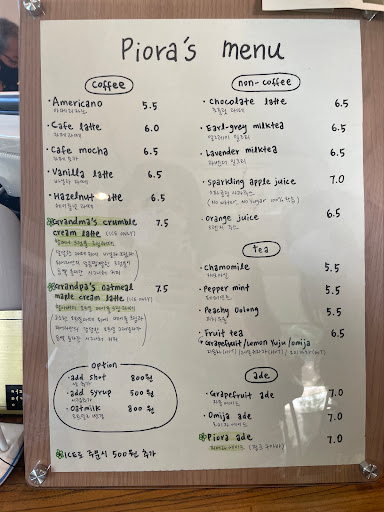 Piora's menu
coffee
• Americano 5.5
아메리카노
• Cafe latte 6.0
카페라떼
• Cafe mocha 6.5
카페모카
• Vanilla latte 6.5
바닐라 라떼
• Hazelnut latte 6.5
헤이즐넛 라떼
Grandma's crumble 7.5
cream latte (ICE only)
Grandpa's oatmeal 7.5
maple cream latte (ICE only)
option
• add shot 800원
샷추가
• add syrup 500원
시럽추가
• Oatmilk 800원
오트밀크 변경
ICE로 주문시 500원 추가
non-coffee
• Chocolate latte 6.5
초콜릿 라떼
• Earl-grey milktea 6.5
얼그레이 밀크티
• Lavender milktea 6.5
라벤더 밀크티
• Sparkling apple juice 7.0
스파클링 사과주스
(No water, No sugar 100% 착즙)
• Orange juice 6.5
오렌지 주스
tea
• Chamomile 5.5
캐모마일
• Pepper mint 5.5
페퍼민트
• Peachy Oolong 5.5
피치우롱
• Fruit tea 6.5
• Grapefruit/Lemon Yuju/omija
ade
• Grapefruit ade 7.0
자몽에이드
• Omija ade 7.0
오미자 에이드
Piora ade 7.0
피어라 에이드 (핑크 구아바)